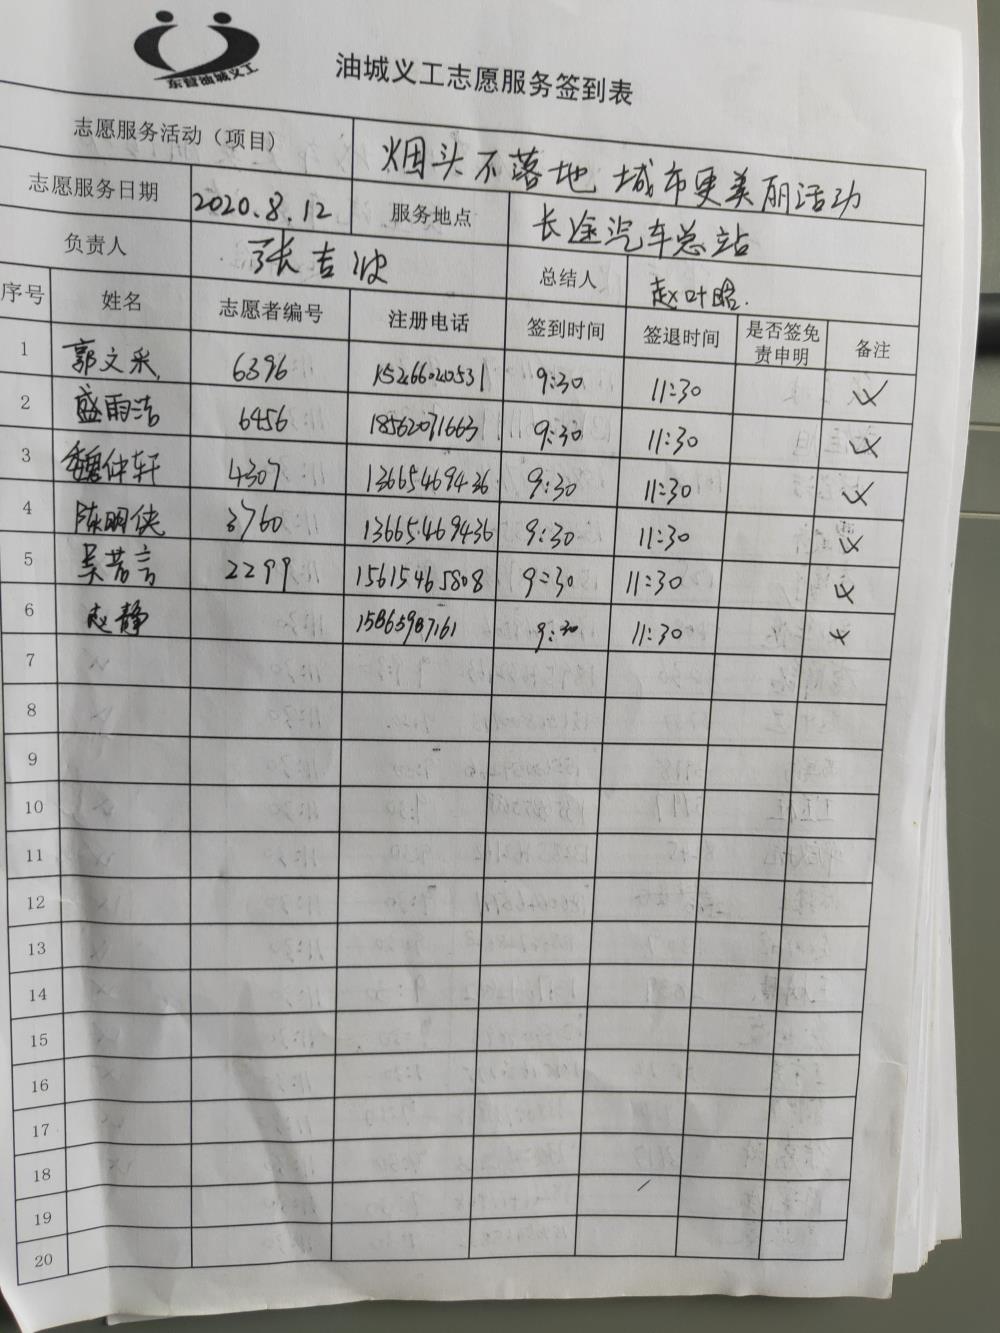 东营油城义工
油城义工志愿服务签到表
志愿服务活动（项目） 烟头不落地 城市更美丽活动
志愿服务日期 2020.8.12 服务地点 长途汽车总站
负责人 张吉波 总结人 赵叶晗.
序号 姓名 志愿者编号 注册电话 签到时间 签退时间 是否签免责申明 备注
1 郭文采 6396 15266020531 9:30 11:30
2 盛雨洁 6456 18562071663 9:30 11:30
3 魏仲轩 4307 13665469436 9:30 11:30
4 陈明侠 3760 13665469436 9:30 11:30
5 吴若言 2299 15615465808 9:30 11:30
6 赵静 15865987161 9:30 11:30
7
8
9
10
11
12
13
14
15
16
17
18
19
20